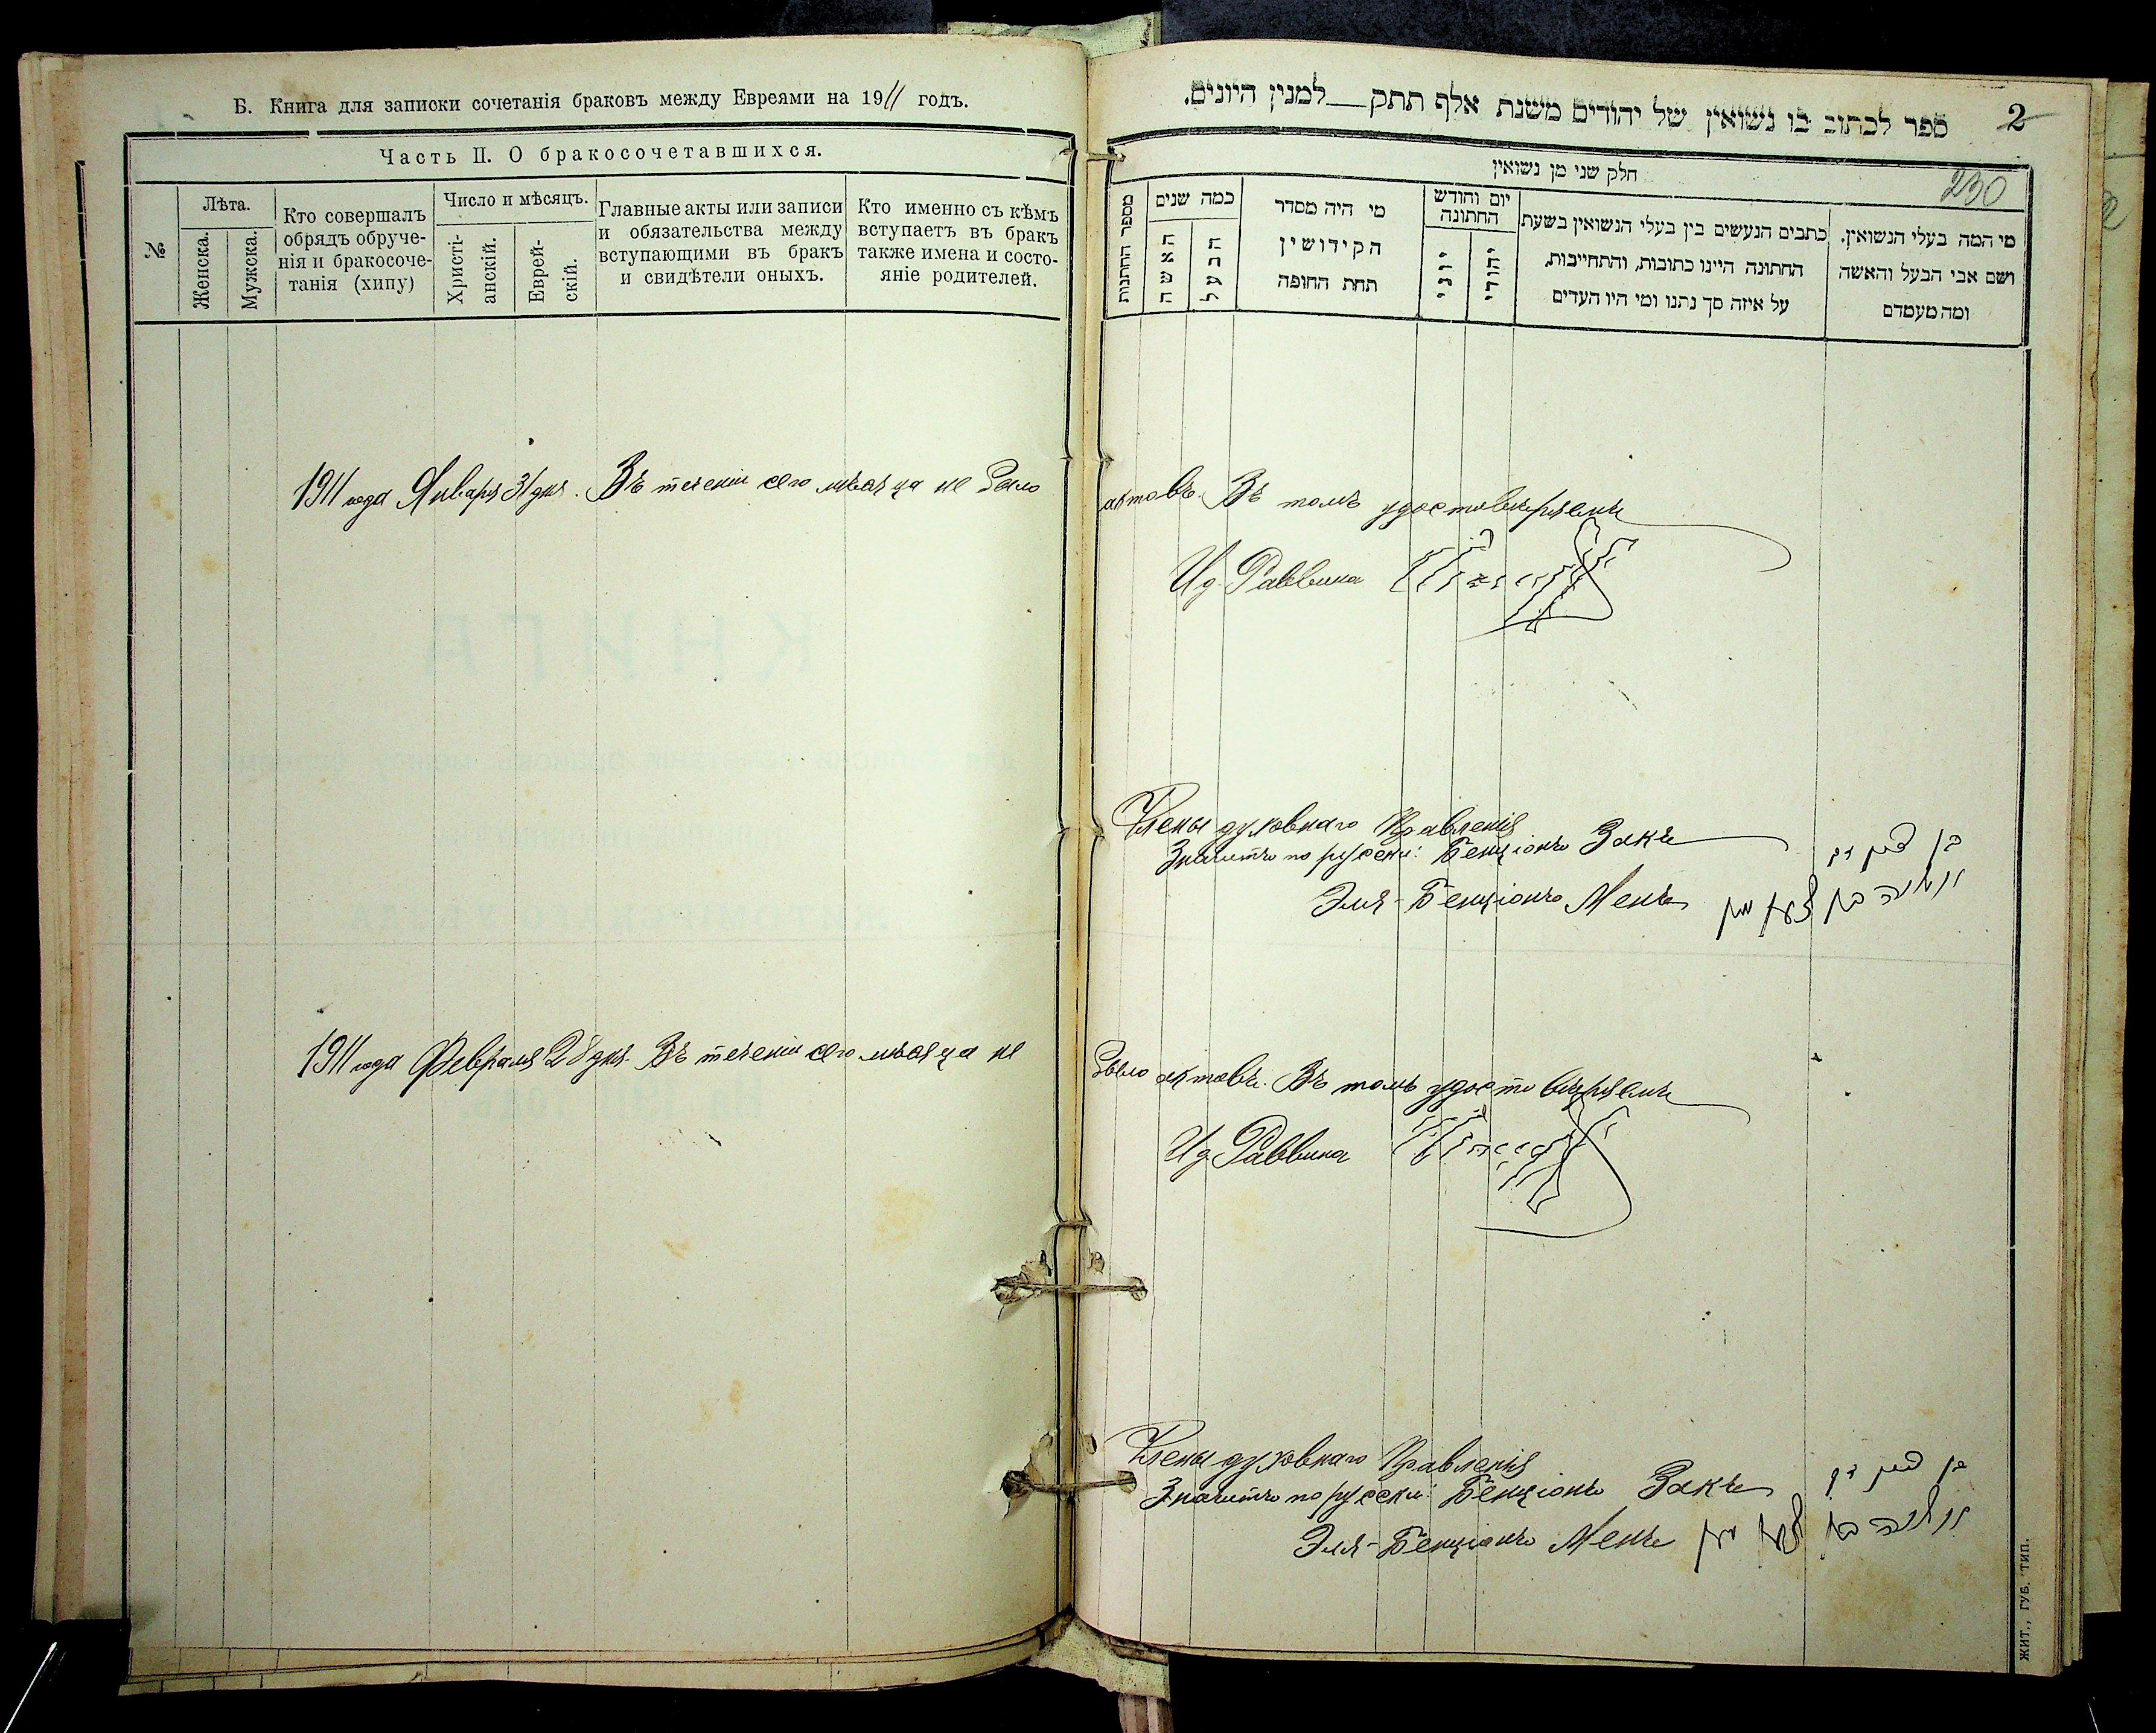 Б. Книга для записки сочетанія браковъ между Евреями на 1911 годъ.
Часть II. О бракосочетавшихся.
№
Лѣта.
Женска.
Мужска.
Кто совершалъ
обрядъ обруче-
нія и бракосоче-
танія (хипу)
Число и мѣсяцъ.
Христі-
анскій.
Еврей-
скій.
Главные акты или записи
и обязательства между
вступающими въ бракъ
и свидѣтели оныхъ.
Кто именно съ кѣмъ
вступаетъ въ бракъ
также имена и состо-
яніе родителей.
1911 года Января 31 дня. Въ теченіи сего мѣсяца не было
1911 года Февраля 28 дня. Въ теченіи сего мѣсяца не
ספר לכתוב בו נשואין של יהודים משנת אלף תתק__למנין היונים.
2
230
חלק שני מן נשואין
מי המה בעלי הנשואין.
ושם אבי הבעל והאשה
ומה מעמדם
כתבים הנעשים בין בעלי הנשואין בשעת
החתונה היינו כתובות, והתחייבות,
על איזה סך נתנו ומי היו העדים
יום וחודש
החתונה
יהודי
יוני
מי היה מסדר
הקידושין
תחת החופה
כמה שנים
הבעל
האשה
מספר החתונות
актовъ. Въ томъ удостовѣряемъ
И.д. Раввина
Члены духовнаго Правленія
Значитъ по русски: Бенціонъ Закъ
בן ציון זק
Эля-Бенціонъ Менъ
אליה בן ציון מען
было актовъ. Въ томъ удостовѣряемъ
И.д. Раввина
Члены духовнаго Правленія
Значитъ по русски: Бенціонъ Закъ
בן ציון זק
Эля-Бенціонъ Менъ
אליה בן ציון מען
ЖИТ., ГУБ. ТИП.